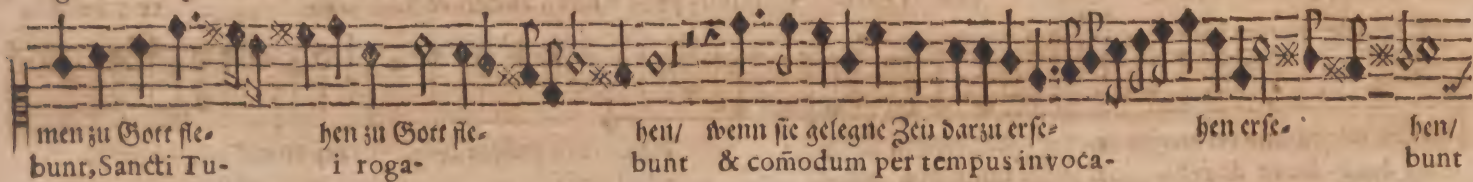 men zu Gott fle- hen zu Gott fle- hen/ wenn sie gelegne Zeit darzu erse- hen erse- hen/
bunt, Sancti Tu- i roga- bunt & com̃odum per tempus invoca- bunt